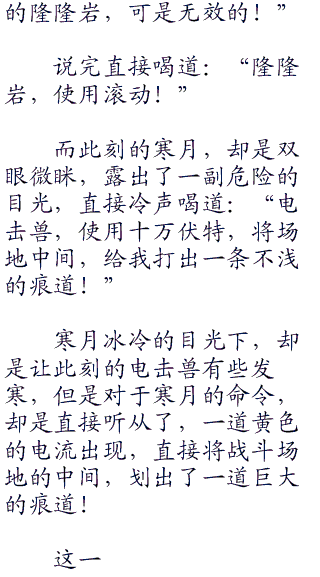 的隆隆岩，可是无效的！”
说完直接喝道：“隆隆
岩，使用滚动！”
而此刻的寒月，却是双
眼微眯，露出了一副危险的
目光，直接冷声喝道：“电
击兽，使用十万伏特，将场
地中间，给我打出一条不浅
的痕道！”
寒月冰冷的目光下，却
是让此刻的电击兽有些发
寒，但是对于寒月的命令，
却是直接听从了，一道黄色
的电流出现，直接将战斗场
地的中间，划出了一道巨大
的痕道！
这一